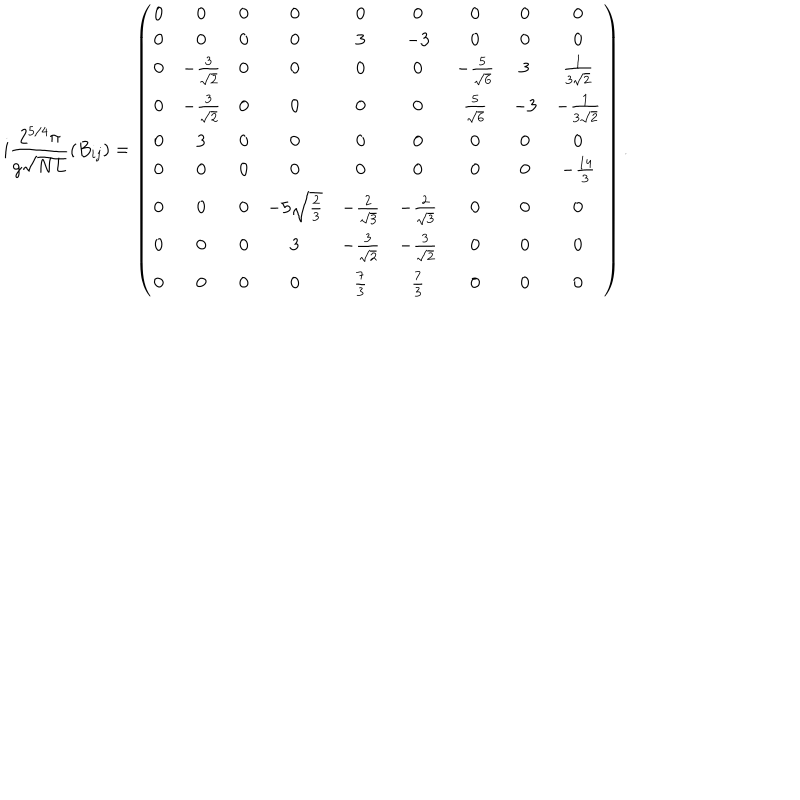 i\frac{2^{5/4}\pi}{g\sqrt{NL}}(B_{ij}) = \begin{pmatrix}
0 & 0 & 0 & 0 & 0 & 0 & 0 & 0 & 0 \\
0 & 0 & 0 & 0 & 3 & -3 & 0 & 0 & 0 \\
0 & -\frac{3}{\sqrt{2}} & 0 & 0 & 0 & 0 & -\frac{5}{\sqrt{6}} & 3 & \frac{1}{3\sqrt{2}} \\
0 & -\frac{3}{\sqrt{2}} & 0 & 0 & 0 & 0 & \frac{5}{\sqrt{6}} & -3 & -\frac{1}{3\sqrt{2}} \\
0 & 3 & 0 & 0 & 0 & 0 & 0 & 0 & 0 \\
0 & 0 & 0 & 0 & 0 & 0 & 0 & 0 & -\frac{14}{3} \\
0 & 0 & 0 & -5\sqrt{\frac{2}{3}} & -\frac{2}{\sqrt{3}} & -\frac{2}{\sqrt{3}} & 0 & 0 & 0 \\
0 & 0 & 0 & 3 & -\frac{3}{\sqrt{2}} & -\frac{3}{\sqrt{2}} & 0 & 0 & 0 \\
0 & 0 & 0 & 0 & \frac{7}{3} & \frac{7}{3} & 0 & 0 & 0
\end{pmatrix}.